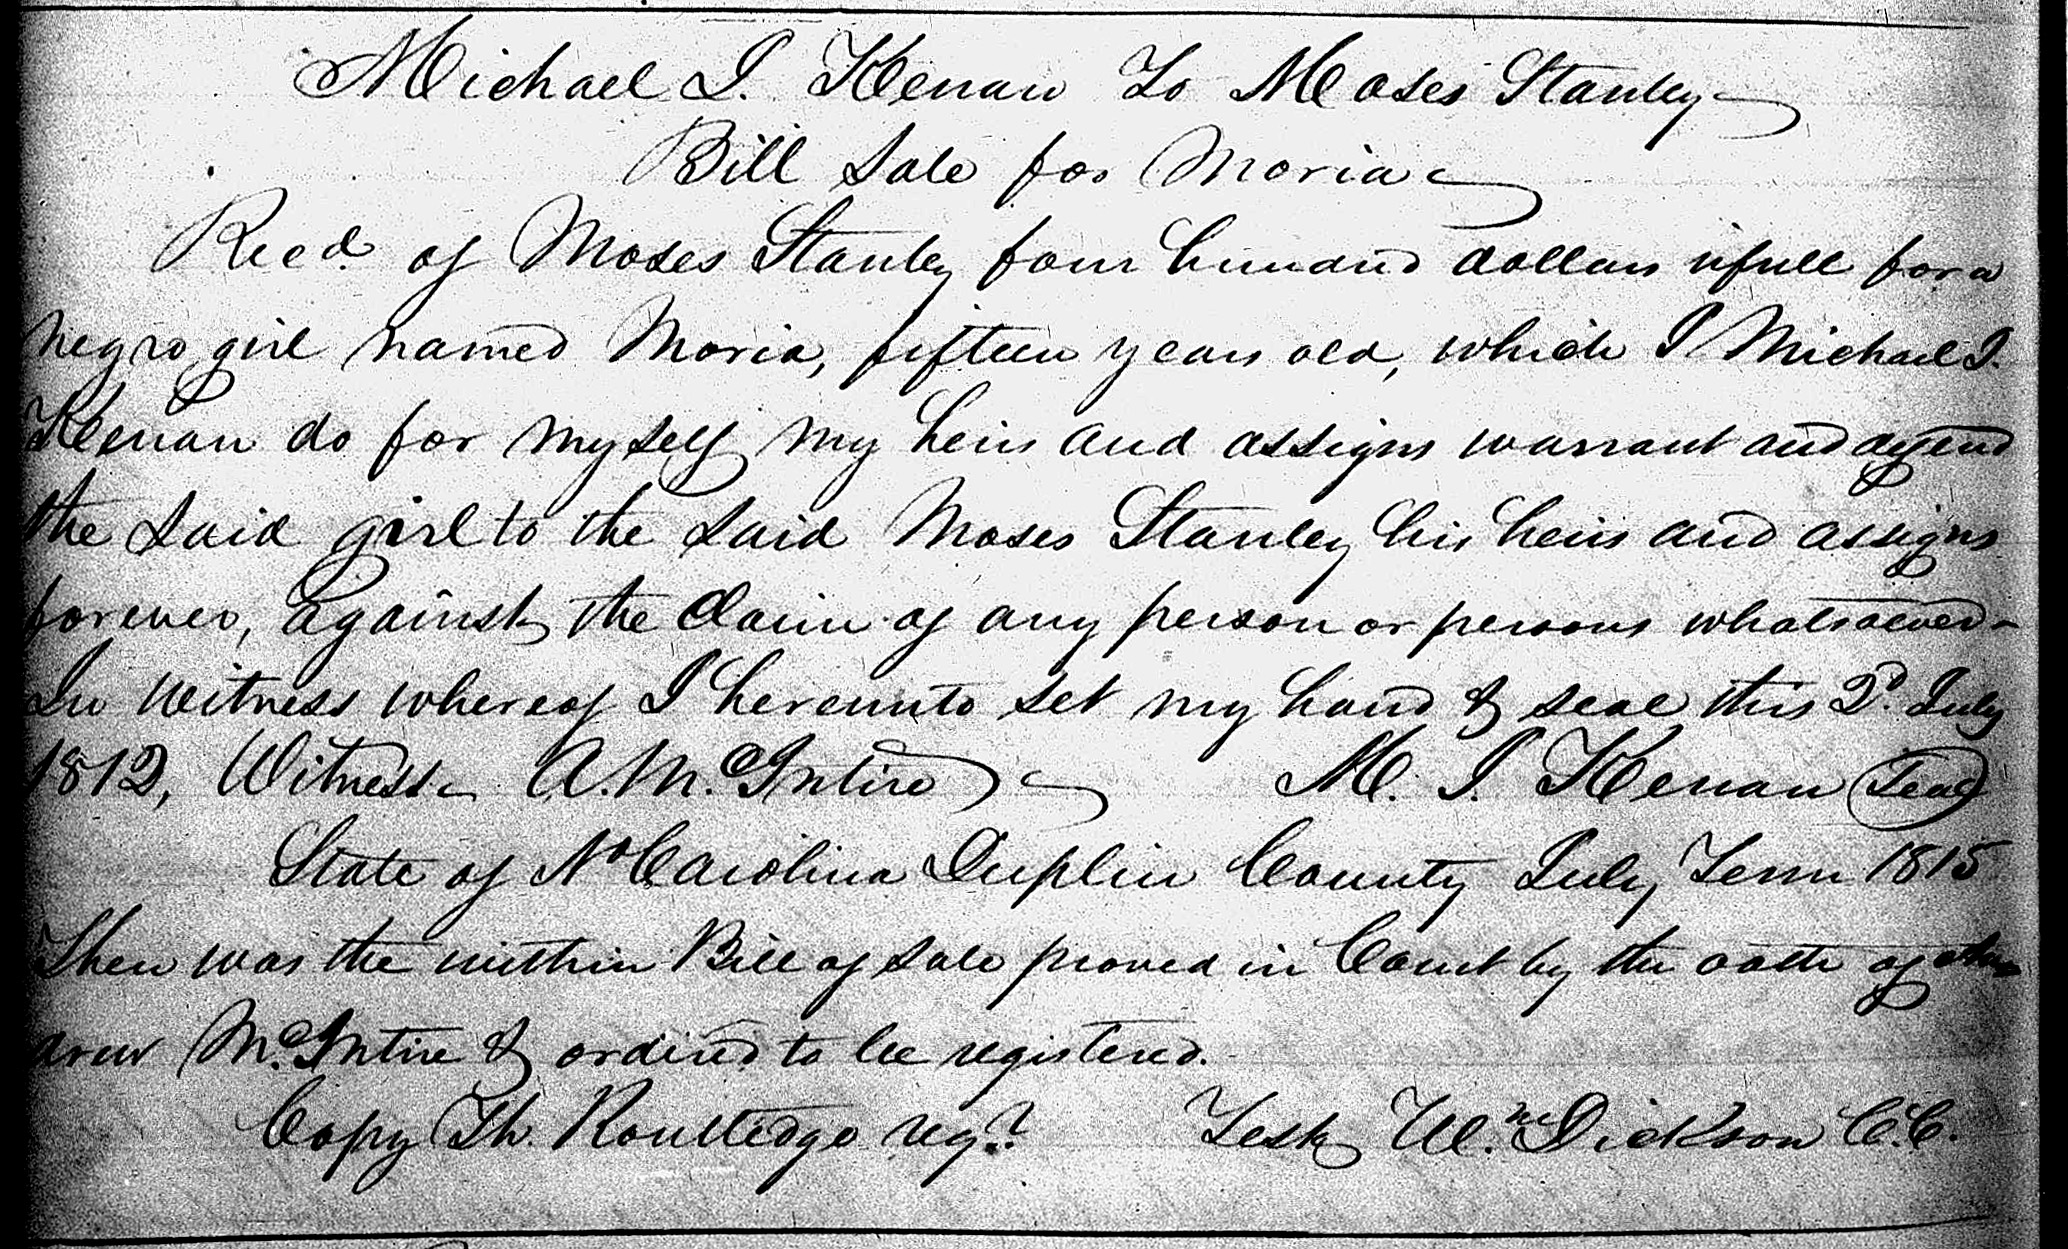 Michael I. Kenan To Moses Stanley
Bill Sale for Moria
Recd. of Moses Stanley four hundred dollars infull for a
negro girl named Moria, fifteen years old, which I Michael I.
Kenan do for myself my heirs and assigns warrant and defend
the said girl to the said Moses Stanley his heirs and assigns
forever, against the claim of any person or persons whatsoever-
In witness whereof I hereunto set my hand & seal this 2d. July
1812, Witness A. McIntire M. I. Kenan (Seal)
State of No Carolina Duplin County July Term 1815
Then was the within Bill of sale proved in Court by the oath of An
drew McIntire & ordered to be registered.
Copy Th. Routledge regr. Test Wm. Dickson C.C.